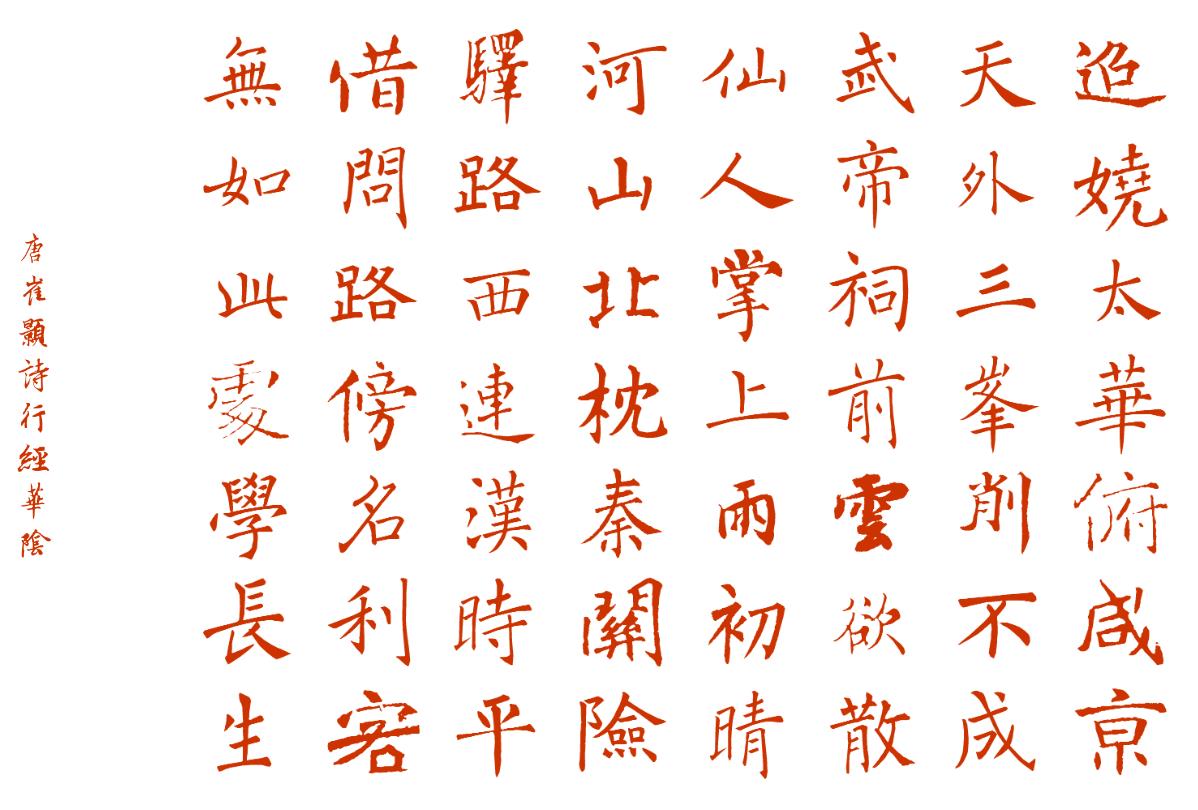 迢嬈太華俯咸京
天外三峯削不成
武帝祠前雲欲散
仙人掌上雨初晴
河山北枕秦關險
驛路西連漢時平
借問路傍名利客
無如此處學長生
唐崔顥詩行經華陰